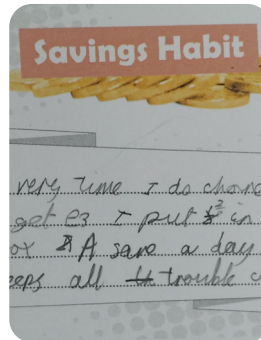 Savings Habit
very time I do chore
get £3 I put £2 in
A save a day
eeps all trouble